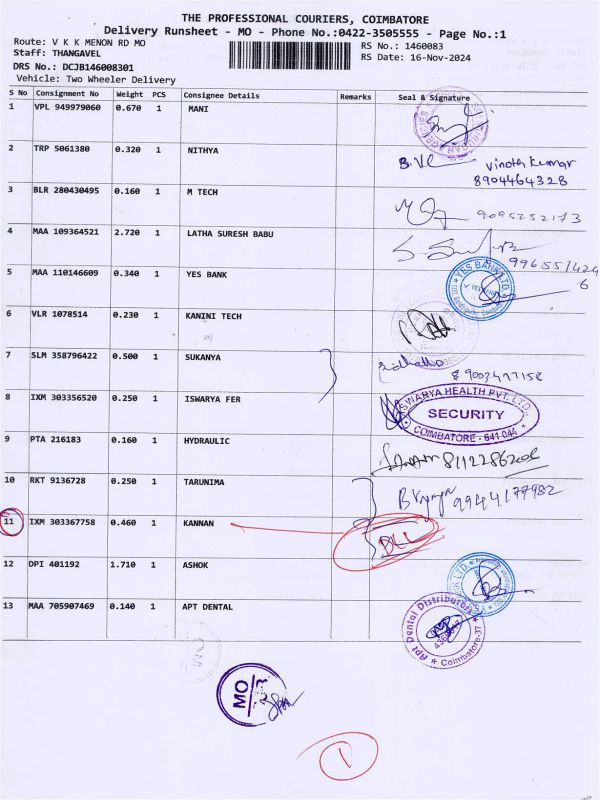 THE PROFESSIONAL COURIERS, COIMBATORE
Delivery Runsheet - MO - Phone No.:0422-3505555 - Page No.:1
Route: V K K MENON RD MO
Staff: THANGAVEL
DRS No.: DCJB146008301
Vehicle: Two Wheeler Delivery
RS No.: 1460083
RS Date: 16-Nov-2024
S No Consignment No Weight PCS Consignee Details Remarks Seal & Signature
1 VPL 949979060 0.670 1 MANI
2 TRP 5061380 0.320 1 NITHYA
vinoth kumar
8904464328
3 BLR 280430495 0.160 1 M TECH
9095252173
4 MAA 109364521 2.720 1 LATHA SURESH BABU
5 MAA 110146609 0.340 1 YES BANK
YES BANK LTD
6 VLR 1078514 0.230 1 KANINI TECH
7 SLM 358796422 0.500 1 SUKANYA
8 IXM 303356520 0.250 1 ISWARYA FER
ISWARYA HEALTH PVT. LTD.
SECURITY
COIMBATORE - 641 044
9 PTA 216183 0.160 1 HYDRAULIC
10 RKT 9136728 0.250 1 TARUNIMA
9944177982
11 IXM 303367758 0.460 1 KANNAN
12 DPI 401192 1.710 1 ASHOK
13 MAA 705907469 0.140 1 APT DENTAL
Apt Dental Distributors
Coimbatore-37
MO
1